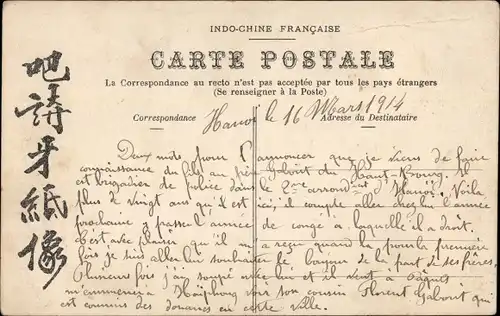 INDO-CHINE FRANÇAISE
CARTE POSTALE
La Correspondance au recto n'est pas acceptée par tous les pays étrangers
(Se renseigner à la Poste)
Correspondance
Adresse du Destinataire
Hanoi le 16 Mars 1914
Deux mots pour t'annoncer que je viens de faire
connaissance du fils au père Gabout du Haut-Kroug. Il
est brigadier de police dans le 2ème arrondnt d'Hanoï. Voilà
plus de vingt ans qu'il est ici, il compte aller chez lui l'année
prochaine passer l'année de congé à laquelle il a droit.
C'est avec plaisir qu'il m'a reçu quand pour la première
fois je suis aller lui souhaiter le bonjour de la part de ses frères.
Plusieurs fois j'ai soupé avec lui et il veut à Pâques
m'emmener à Haïphong voir son cousin Florent Gabout qui
est commis des douanes en cette ville.
吧
請
牙
紙
像